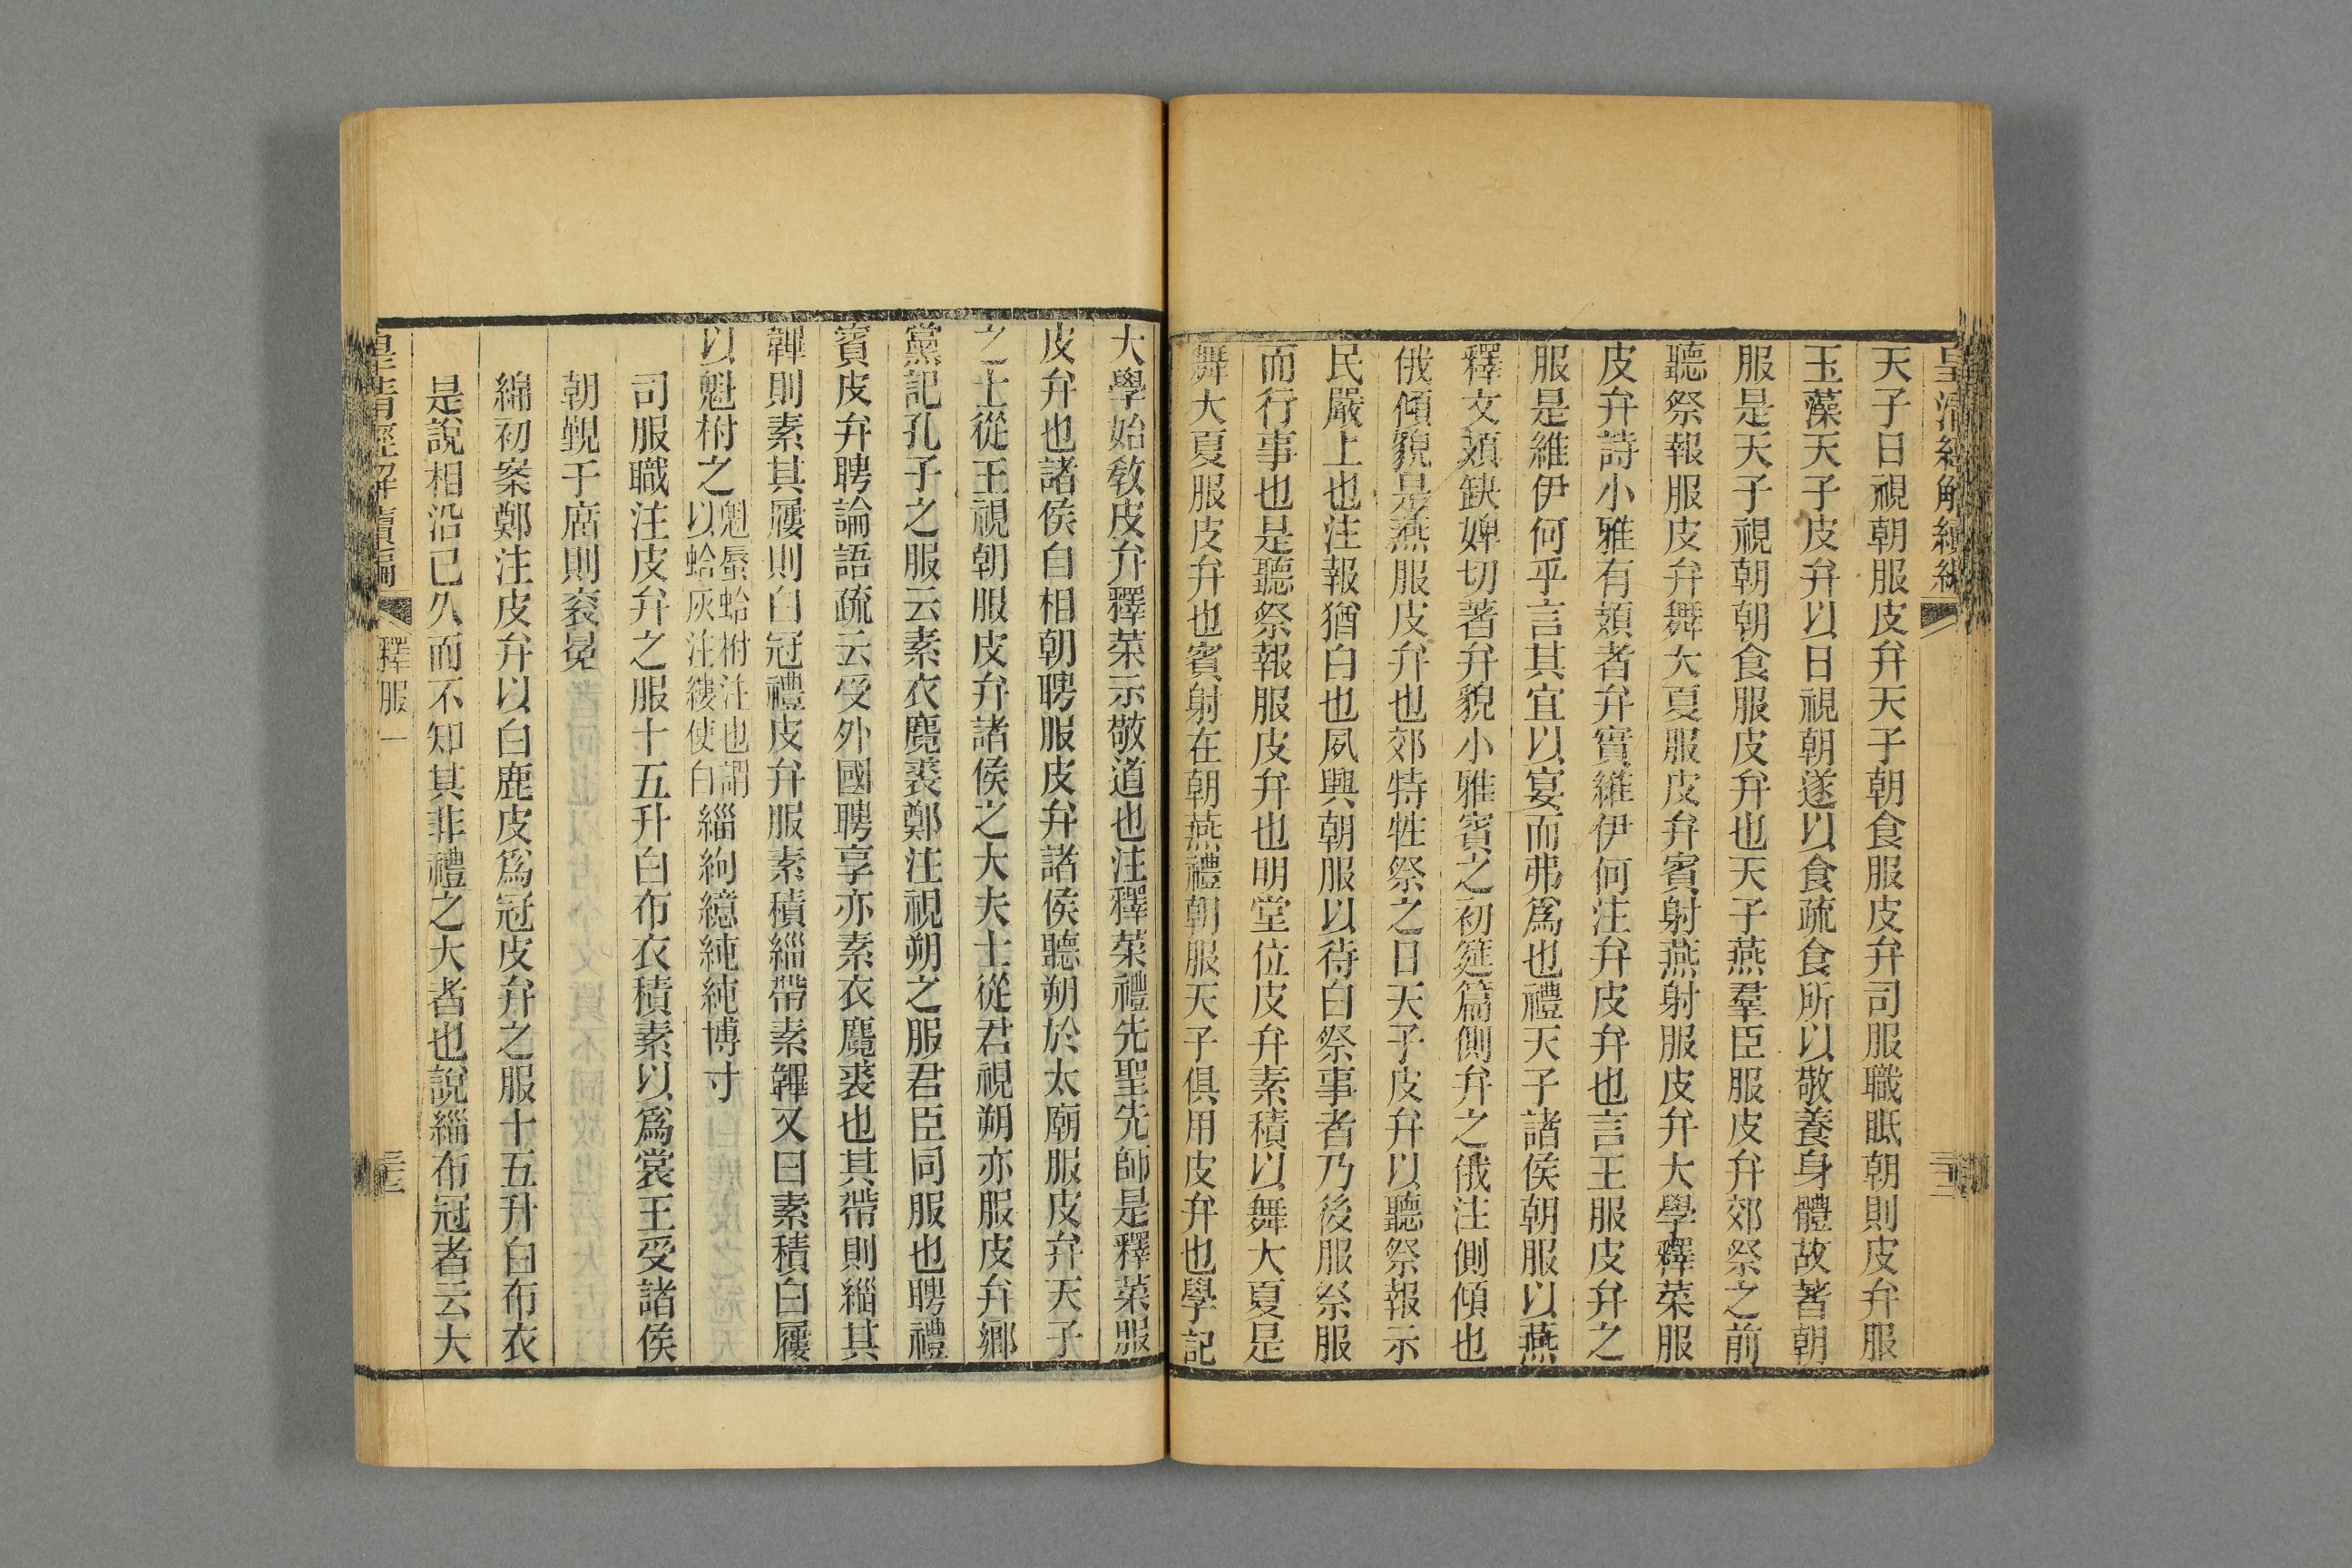 天子日視朝服皮弁天子朝食服皮弁司服職眡朝則皮弁服
玉藻天子皮弁以日視朝遂以食疏食所以敬養身體故著朝
服是天子視朝朝食服皮弁也天子燕羣臣服皮弁郊祭之前
聽祭報服皮弁舞大夏服皮弁賓射燕射服皮弁大學釋菜服
皮弁詩小雅有頍者弁實維伊何注弁皮弁也言王服皮弁之
服是維伊何乎言其宜以宴而弗爲也禮天子諸侯朝服以燕
釋文頍缺婢切著弁貌小雅賓之初筵篇側弁之俄注側傾也
俄傾貌是燕服皮弁也郊特牲祭之日天子皮弁以聽祭報示
民嚴上也注報猶白也夙興朝服以待白祭事者乃後服祭服
而行事也是聽祭報服皮弁也明堂位皮弁素積以舞大夏是
舞大夏服皮弁也賓射在朝燕禮朝服天子俱用皮弁也學記
大學始敎皮弁釋菜示敬道也注釋菜禮先聖先師是釋菜服
皮弁也諸侯自相朝聘服皮弁諸侯聽朔於太廟服皮弁天子
之士從王視朝服皮弁諸侯之大夫士從君視朔亦服皮弁鄉
黨記孔子之服云素衣麑裘鄭注視朔之服君臣同服也聘禮
賓皮弁聘論語疏云受外國聘享亦素衣麑裘也其帶則緇其
韠則素其屨則白冠禮皮弁服素積緇帶素韠又曰素積白屨
以魁柎之魁蜃蛤柎注也謂以蛤灰注縷使白緇絇繶純純博寸
司服職注皮弁之服十五升白布衣積素以爲裳王受諸侯
朝覲于廟則衮冕
綿初案鄭注皮弁以白鹿皮爲冠皮弁之服十五升白布衣
是說相沿已久而不知其非禮之大者也說緇布冠者云大
皇清經解續編
釋服一